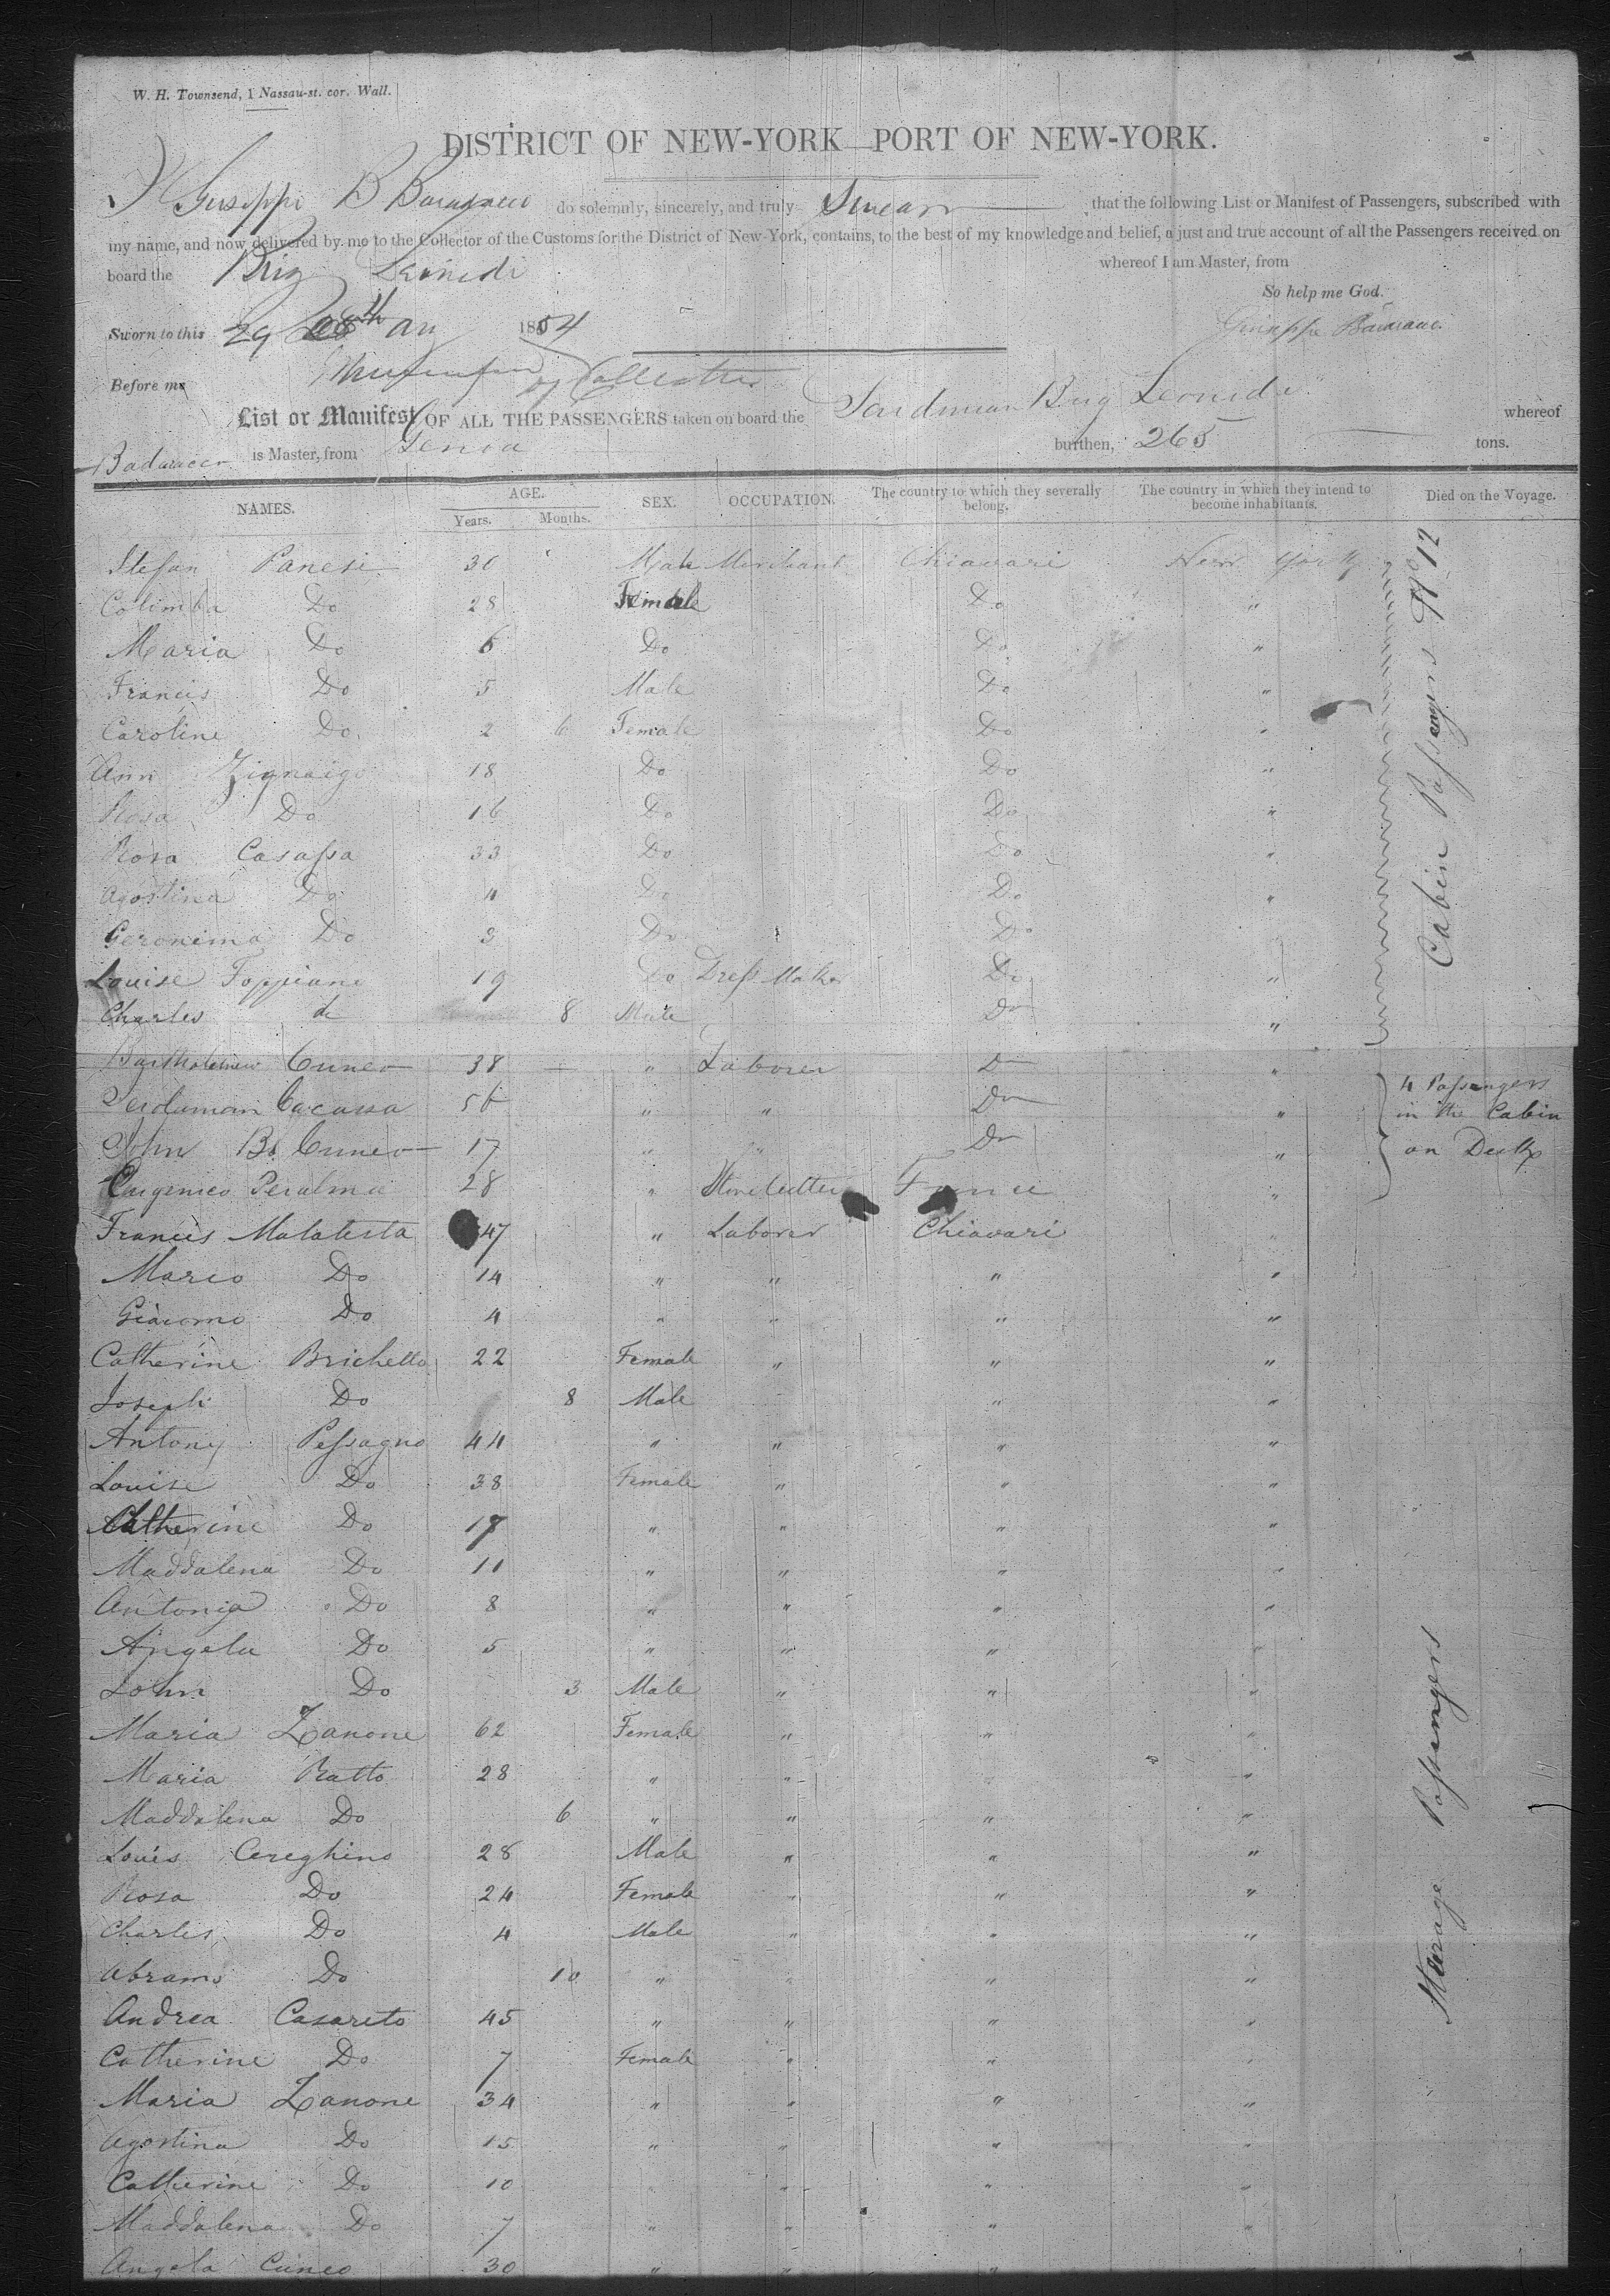 W. H. Townsend, 1 Nassau-st. cor. Wall.
DISTRICT OF NEW-YORK—PORT OF NEW-YORK.
I Giuseppi B do solemnly, sincerely, and truly Swear that the following List or Manifest of Passengers, subscribed with
my name, and now delivered by me to the Collector of the Customs for the District of New-York, contains, to the best of my knowledge and belief, a just and true account of all the Passengers received on
board the Brig whereof I am Master, from
So help me God.
Sworn to this 29 1854
Before me
List or Manifest OF ALL THE PASSENGERS taken on board the Sardinian Brig Leonida whereof
Badaracco is Master, from Genoa burthen, 265 tons.
NAMES. AGE. Years. Months. SEX. OCCUPATION. The country to which they severally belong. The country in which they intend to become inhabitants. Died on the Voyage.
Stefan Panesi 30 Male Merchant Chiavari New York
Colimba Do 28 Female Do "
Maria Do 6 Do Do "
Francis Do 5 Male Do "
Caroline Do 2 6 Female Do "
Ann Zignaigo 18 Do Do "
Rosa Do 16 Do Do "
Rosa Casassa 33 Do Do "
Agostina Do 4 Do Do "
Geronima Do 3 Do Do "
Louise Foppiani 19 Do Dress Maker Do "
Charles do 8 Male Do "
Cabin Passengers No 12
Bartholemew Cuneo 38 " Laborer Do "
Cacassa 56 " " Do "
John Bs Cuneo 17 " " Do "
28 " Stone Cutter France "
4 Passengers
in the Cabin
on Deck
Francis Malatesta 47 " Laborer Chiavari "
Marco Do 14 " " " "
Giacomo Do 4 " " " "
Catherine Brichetto 22 Female " " "
Joseph Do 8 Male " "
Antony Pessagno 44 " " " "
Louise Do 38 Female " " "
Catherine Do 17 " " " "
Maddalena Do 11 " " " "
Antonia Do 8 " " " "
Angela Do 5 " " " "
John Do 3 Male " " "
Maria Zanone 62 Female " " "
Maria Ratto 28 " " " "
Maddalena Do 6 " " " "
Louis Cereghino 28 Male " " "
Rosa Do 24 Female " " "
Charles Do 4 Male " " "
Abramo Do 10 " " " "
Andrea Casareto 45 " " " "
Catherine Do 7 Female " " "
Maria Zanone 34 " " " "
Agostina Do 15 " " " "
Catherine Do 10 " " " "
Maddalena Do 7 " " " "
Angela Cuneo 30 " " " "
Sterage Passengers